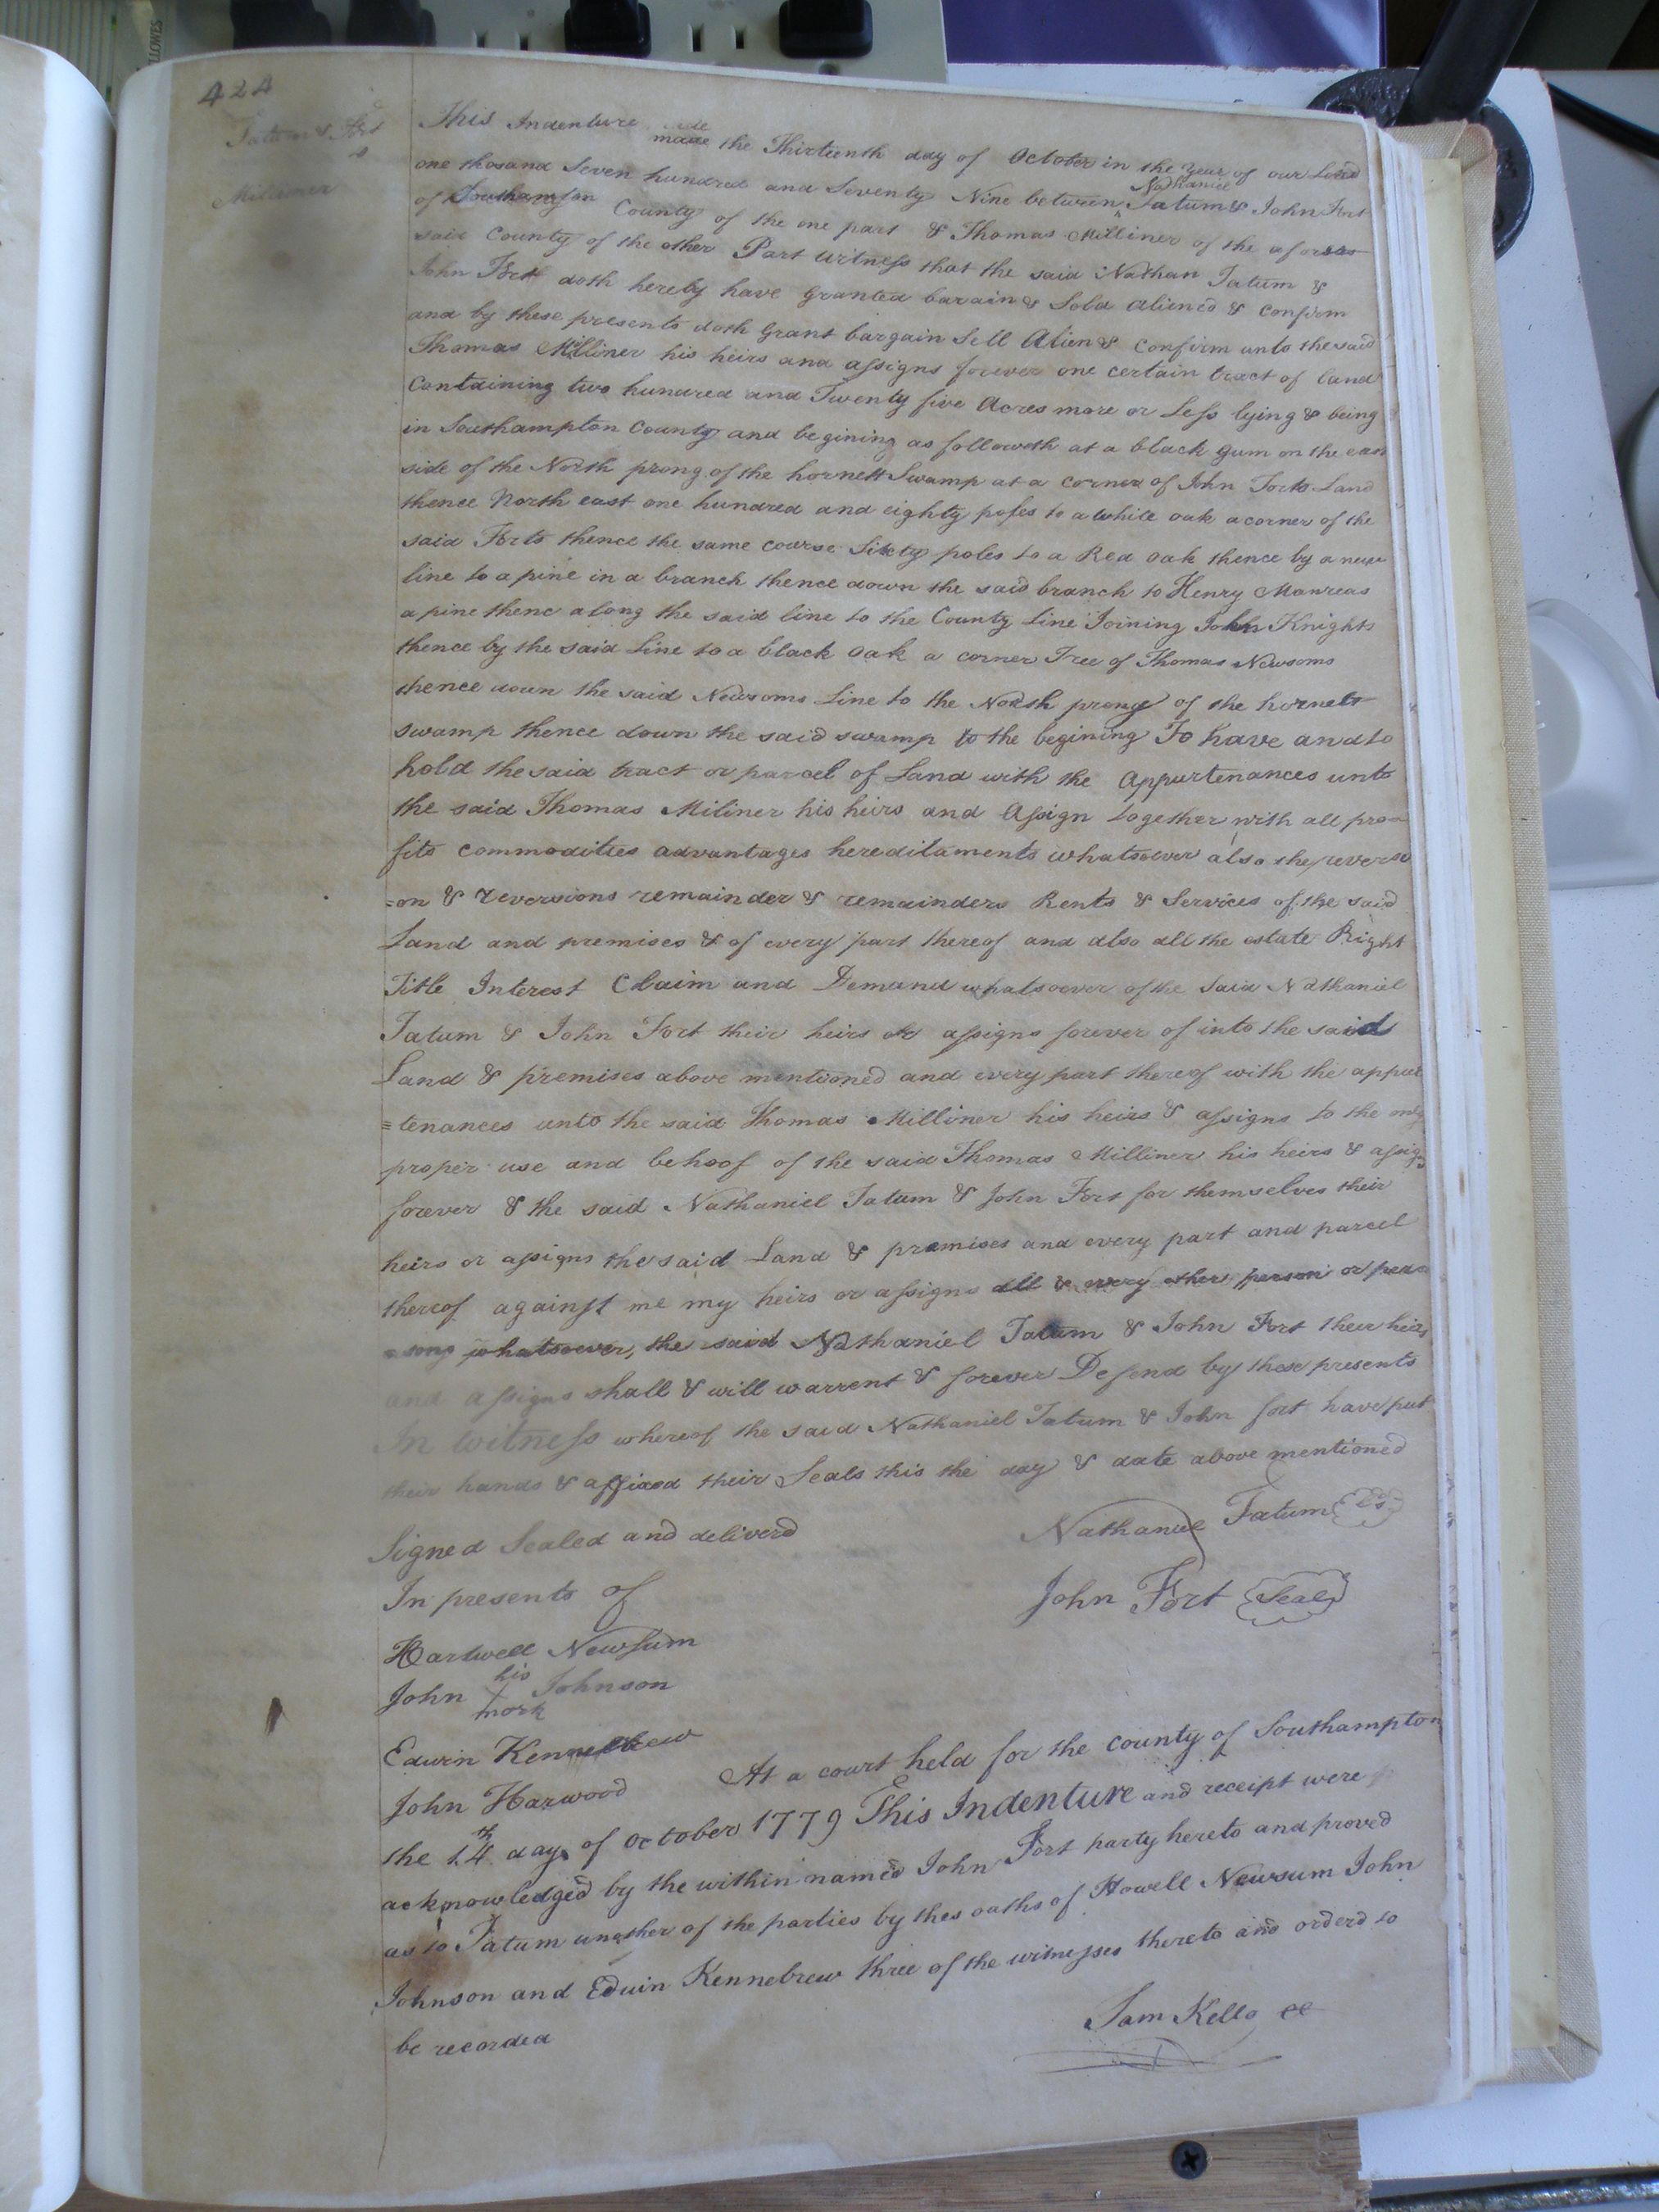 424
Tatum & Fort
Milliner
This Indenture made the Thirteenth day of October in the Year of our Lord
one thosand Seven hundred and Seventy Nine between Nathaniel Tatum & John Fort
of Southampton County of the one part & Thomas Milliner of the afores
said County of the other Part Witness that the said Nathan Tatum &
John Fort doth hereby have granted barain & Sold aliened & confirm
and by these presents doth Grant bargain Sell Alien & Confirm unto the said
Thomas Milliner his heirs and assigns forever one certain tract of land
Containing two hundred and Twenty five Acres more or Less lying & being
in Southampton County and begining as followeth at a black gum on the east
side of the North prong of the hornett Swamp at a corner of John Forts Land
thence North east one hundred and eighty poles to a white oak a corner of the
said Forts thence the same course Sixty poles to a Red oak thence by a new
line to a pine in a branch thence down the said branch to Henry Manreas
a pine thenc along the said line to the County Line Joining John Knights
thence by the said Line to a black oak a corner Tree of Thomas Newsoms
thence down the said Newsoms Line to the North prong of the hornets
swamp thence down the said swamp to the begining To have and to
hold the said tract or parcel of Land with the Appurtenances unto
the said Thomas Miliner his heirs and Assign together with all pro=
fits commodities advantages hereditaments whatsoever also the reversi
=on & reversions remainder & remainders Rents & Services of the said
Land and premises & of every part thereof and also all the estate Right
Title Interest Claim and Demand whatsoever of the Said Nathaniel
Tatum & John Fort their heirs or assigns forever of into the said
Land & premises above mentioned and every part thereof with the appur
=tenances unto the said Thomas Milliner his heirs & assigns to the only
proper use and behoof of the said Thomas Milliner his heirs & assigs
forever & the said Nathaniel Tatum & John Fort for themselves their
heirs or assigns the said Land & premises and every part and parcel
thereof against me my heirs or assigns all & every other person or per
=sons whatsoever, the said Nathaniel Tatum & John Fort their heirs
and assigns shall & will warrent & forever Defend by these presents
In Witness whereof the said Nathaniel Tatum & John fort have put
their hands & affixed their Seals this the day & date above mentioned
Signed Sealed and deliverd
Nathaniel Tatum LS
In presents of
John Fort Seal
Hartwell Newsum
John his X mark Johnson
Edwin Kennebrew
John Harwood
At a court held for the county of Southampton
the 14th day of October 1779 This Indenture and receipt were
acknowledged by the within named John Fort party hereto and proved
as to Tatum another of the parties by thes oaths of Howell Newsum John
Johnson and Edwin Kennebrew three of the witnesses thereto and orderd to
be recorded
Sam Kello CC